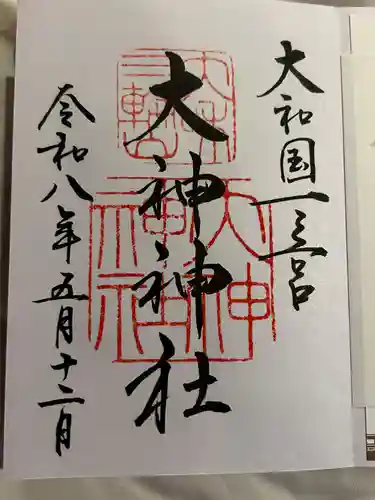 大和国一之宮
大神神社
令和八年五月十二日
大神
神社